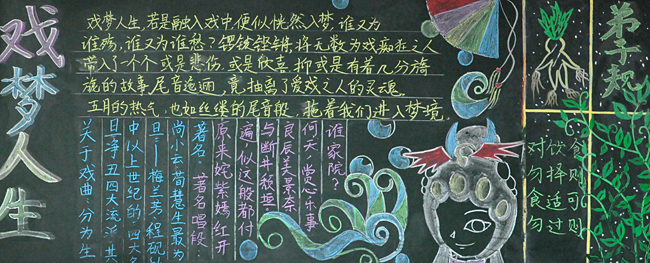 戏梦人生
戏梦人生,若是融入戏中,便似恍然入梦,谁又为
谁痴,谁又为谁愁?锣钹铿锵,将无数为戏痴狂之人
带入了一个个或是悲伤,或是欣喜,抑或是有着几分旖
旎的故事,尾音迤逦,竟抽离了爱戏之人的灵魂。
五月的热气,也如丝缕的尾音般,拖着我们进入梦境.
关于戏曲:分为生
旦净丑四大流派,其
中以上世纪的四大名
旦——梅兰芳程砚
尚小云荀慧生最为
著名。著名唱段:
原来姹紫嫣红开
遍,似这般都付
与断井颓垣
良辰美景奈
何天,赏心乐事
谁家院?
弟子规
对饮食
勿拣择
食适可
勿过则